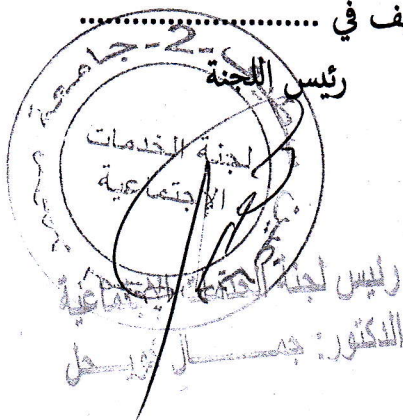 ف في ....................
رئيس اللجنة
-2- جامعة
لجنة الخدمات
الاجتماعية
رئيس لجنة الخدمات الاجتماعية
الدكتور: جمال